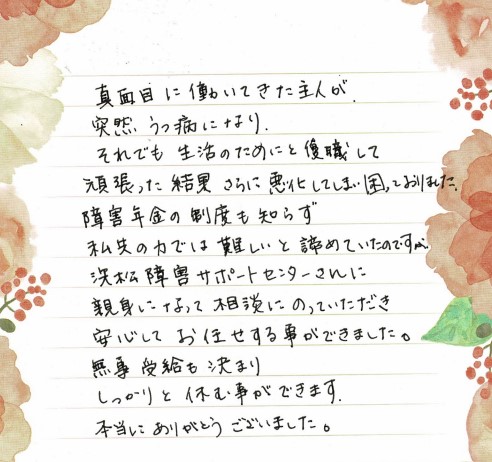 真面目に働いてきた主人が、
突然うつ病になり、
それでも 生活のためにと復職して
頑張った結果 さらに悪化してしまい困っておりました。
障害年金の制度も知らず
私共の力では難しいと諦めていたのですが、
浜松障害サポートセンターさんに
親身になって相談にのっていただき
安心して お任せする事ができました。
無事 受給も決まり
しっかりと休む事ができます。
本当にありがとうございました。